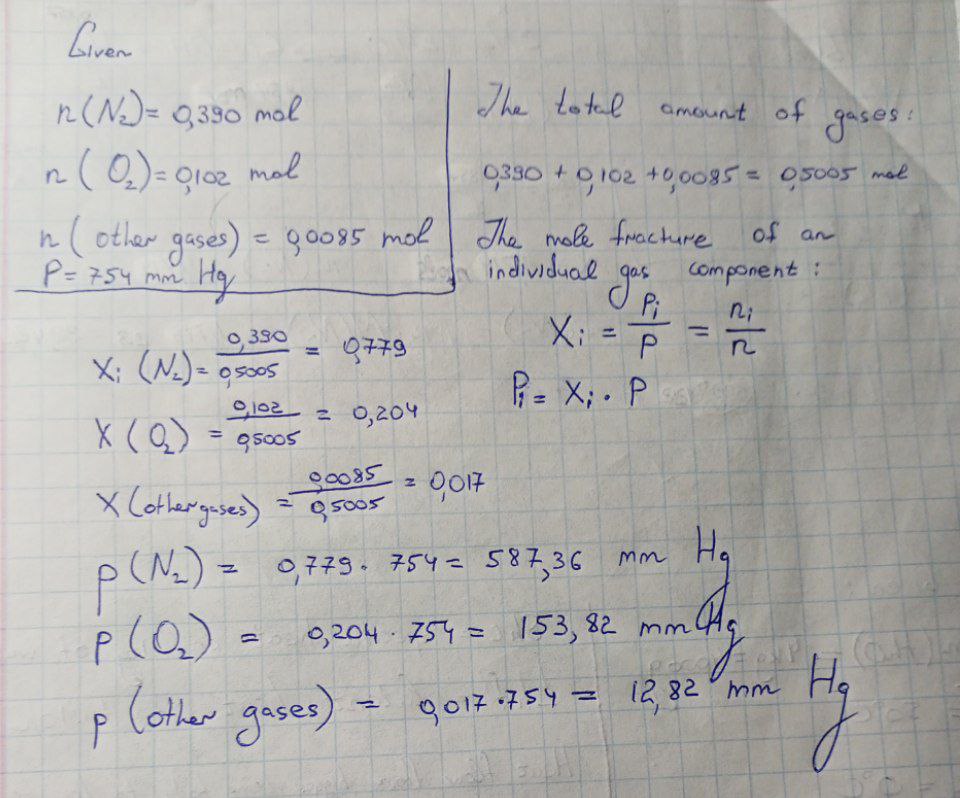 Given
n(N₂)= 0,390 mol
n(O₂)= 0,102 mol
n(other gases) = 0,0085 mol
P= 754 mm Hg
The total amount of gases:
0,390 + 0,102 + 0,0085 = 0,5005 mol
The mole fracture of an
individual gas component:
Xi = Pi/P = ni/n
Pi = Xi · P
Xi (N₂)= 0,390/0,5005 = 0,779
X (O₂) = 0,102/0,5005 = 0,204
X (other gases) = 0,0085/0,5005 = 0,017
p(N₂) = 0,779 · 754 = 587,36 mm Hg
p(O₂) = 0,204 · 754 = 153,82 mm Hg
p(other gases) = 0,017 · 754 = 12,82 mm Hg